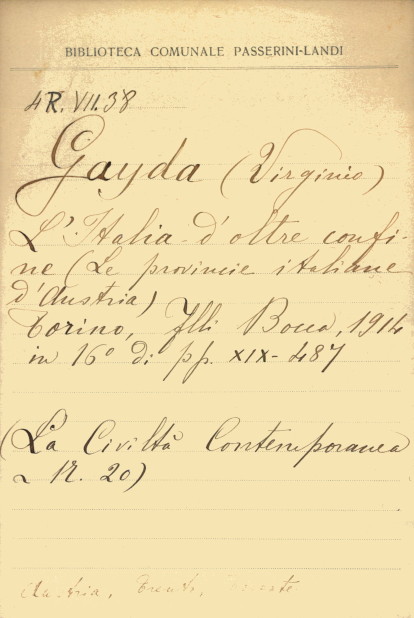 BIBLIOTECA COMUNALE PASSERINI-LANDI
4R.VII.38
Gayda (Virginio)
L'Italia d'oltre confi-
ne (Le provincie italiane
d'Austria)
Torino, Flli Bocca, 1914
in 16° di pp. XIX-487
(La Civiltà Contemporanea
N. 20)
Austria, Trento, Trieste